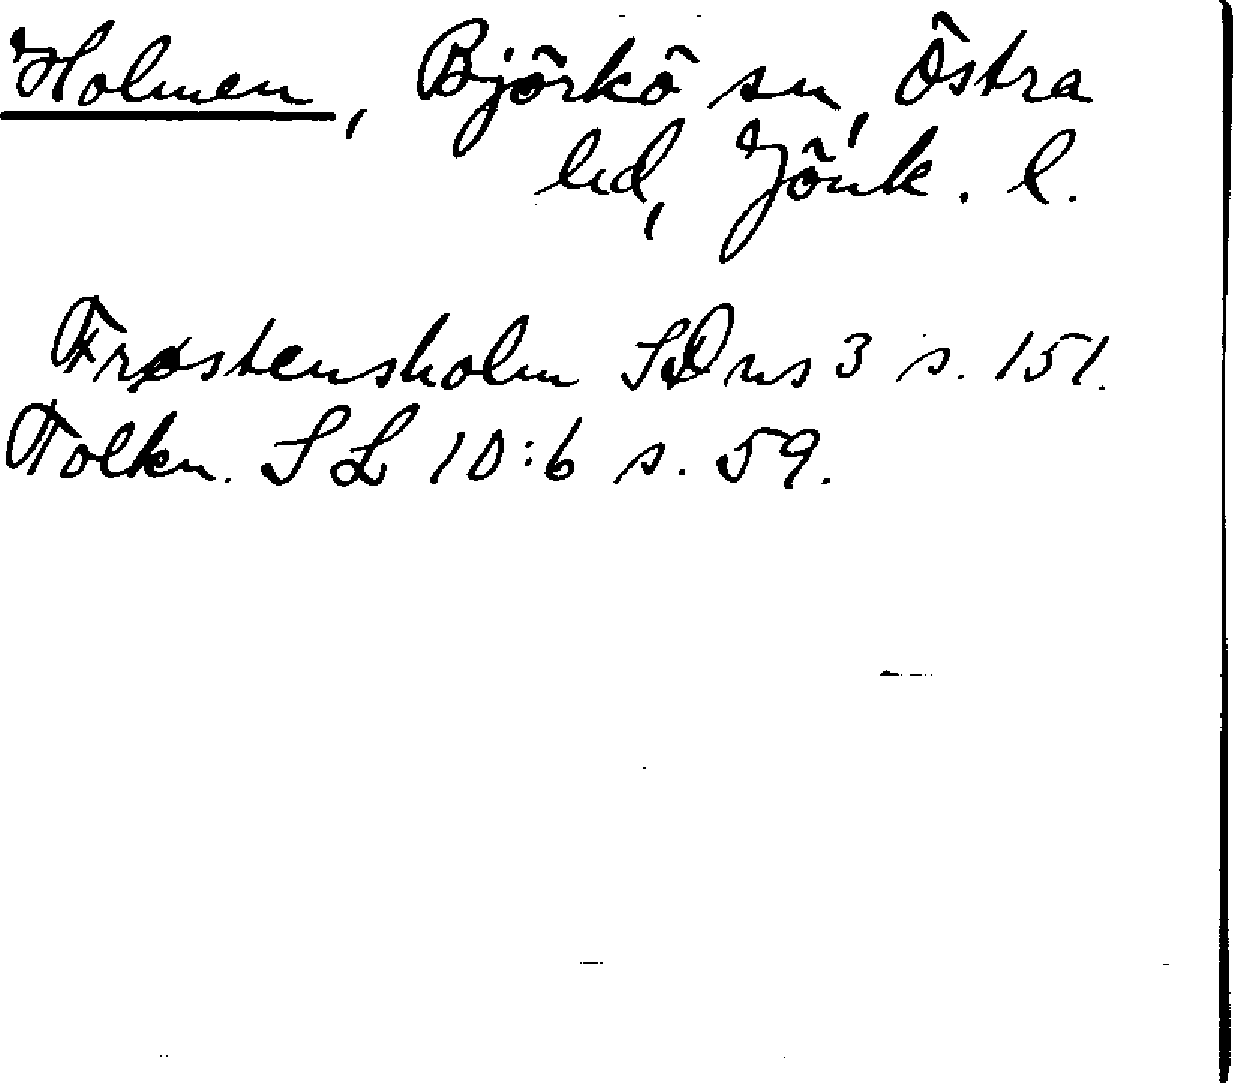 Holmen, Björkö sn, Östra
hd, Jönk. l.
Frøstensholm SD ns 3 s. 151.
Tolkn. SL 10:6 s. 59.